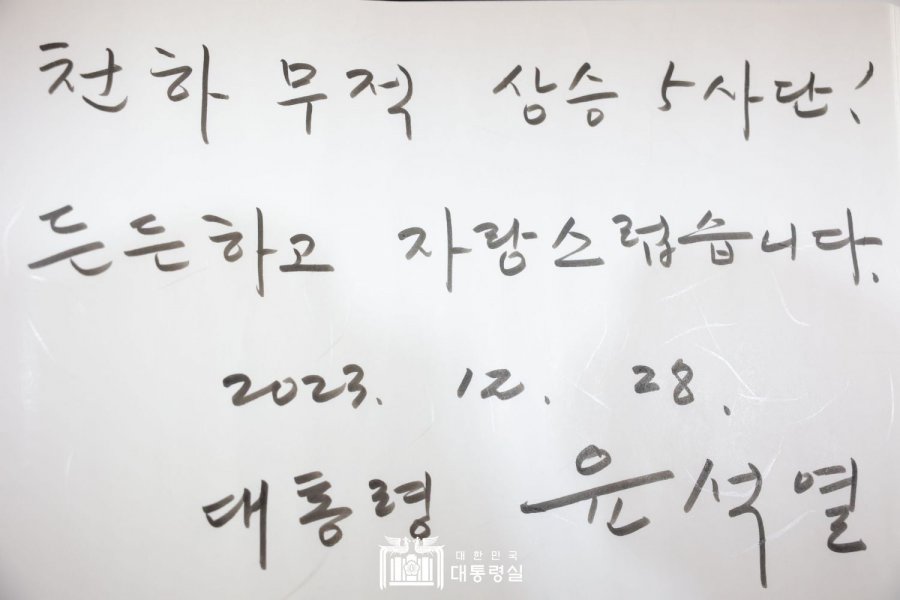 천하 무적 상승 5사단!
든든하고 자랑스럽습니다.
2023. 12. 28.
대통령 윤석열
대한민국
대통령실